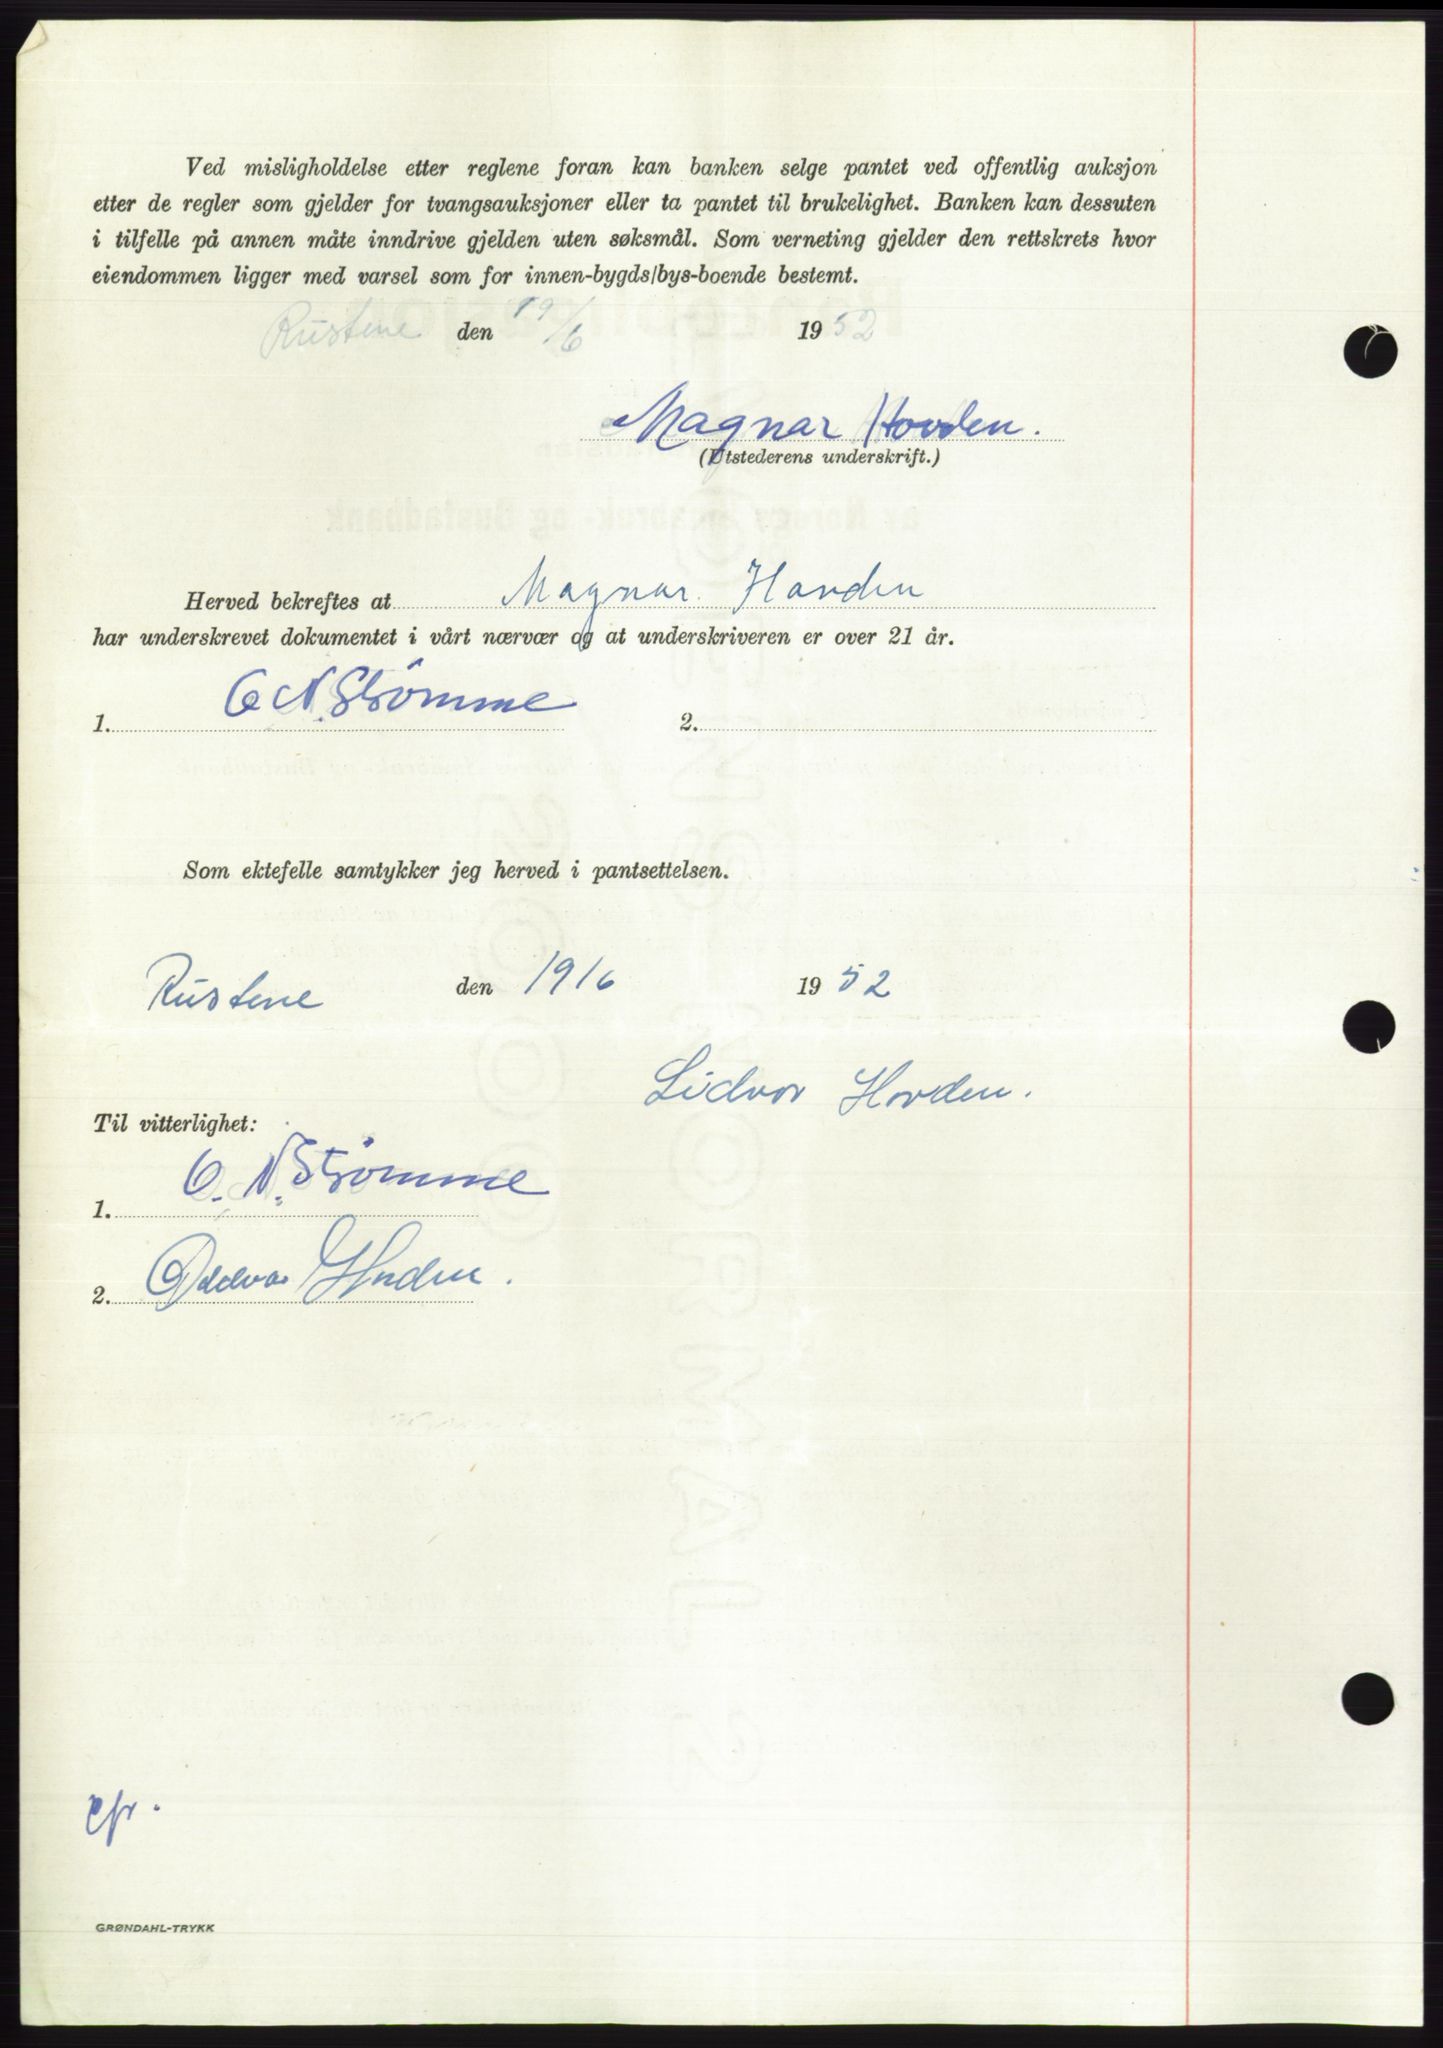 Ved misligholdelse etter reglene foran kan banken selge pantet ved offentlig auksjon
etter de regler som gjelder for tvangsauksjoner eller ta pantet til brukelighet. Banken kan dessuten
i tilfelle på annen måte inndrive gjelden uten søksmål. Som verneting gjelder den rettskrets hvor
eiendommen ligger med varsel som for innen-bygds/bys-boende bestemt.
Rustene den 19/6 1952
Magnar Hovden.
(Utstederens underskrift.)
Herved bekreftes at Magnar Hovden
har underskrevet dokumentet i vårt nærvær og at underskriveren er over 21 år.
1. O. N. Strömme 2.
Som ektefelle samtykker jeg herved i pantsettelsen.
Rustene den 19/6 1952
Lidvor Hovden.
Til vitterlighet:
1. O. N. Strömme
2. Oddvar Hovden.
GRØNDAHL-TRYKK